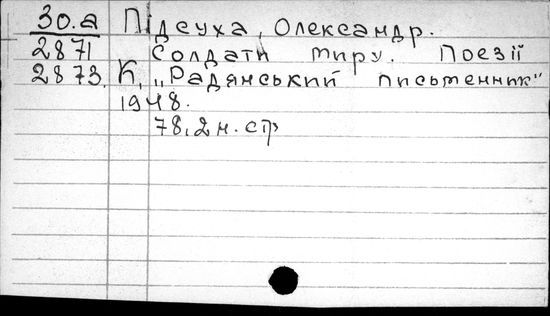 30.а Підсуха, Олександр.
2871 Солдати миру. Поезії
2873. К, „Радянський письменник"
1948.
78, 2 н. стр